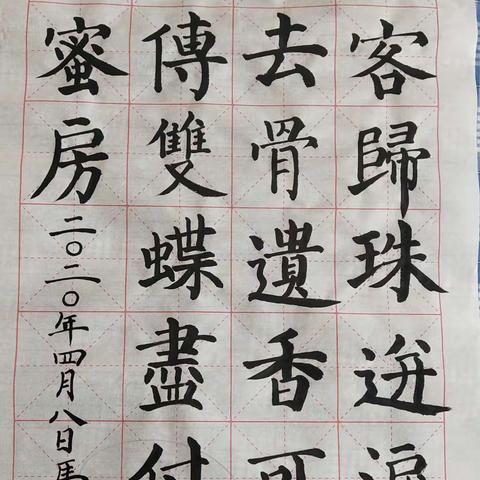 客歸珠迸淚
去骨遺香可
傳雙蝶盡付
蜜房二〇二〇年四月八日馬